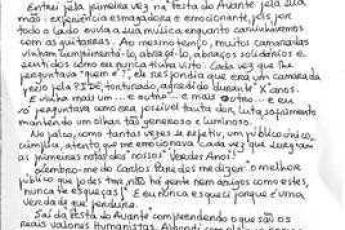 Entrei pela primeira vez na Festa do Avante pela sua
mão: experiência esmagadora e emocionante, pois por
todo o lado ouvia a sua música enquanto caminhávamos
com as guitarras. Ao mesmo tempo, muitos camaradas
vinham cumprimentá-lo, abraçá-lo, abraços solidários e
sentidos como eu nunca tinha visto. Cada vez que lhe
perguntava "quem é?", ele respondia que era um camarada
preso pela PIDE, torturado, agredido durante "X" anos.
E vinha mais um... e outro... e mais outro... e eu
perguntava como era possível tanta dor, luta, sofrimento
mantendo um olhar tão generoso e luminoso.
No palco, como tantas vezes se repetiu, um público único,
cumplice, atento que me emocionava cada vez que surgiam
as primeiras notas dos "nossos" Verdes Anos!
Lembro-me do Carlos Paredes me dizer: "o melhor
público que podes ter, não há gente nem amigos como estes,
nunca te esqueças!" E eu nunca esqueci porque é uma
verdade que perdura.
Saí da Festa do Avante compreendendo o que são os
reais valores Humanistas. Aprendi com